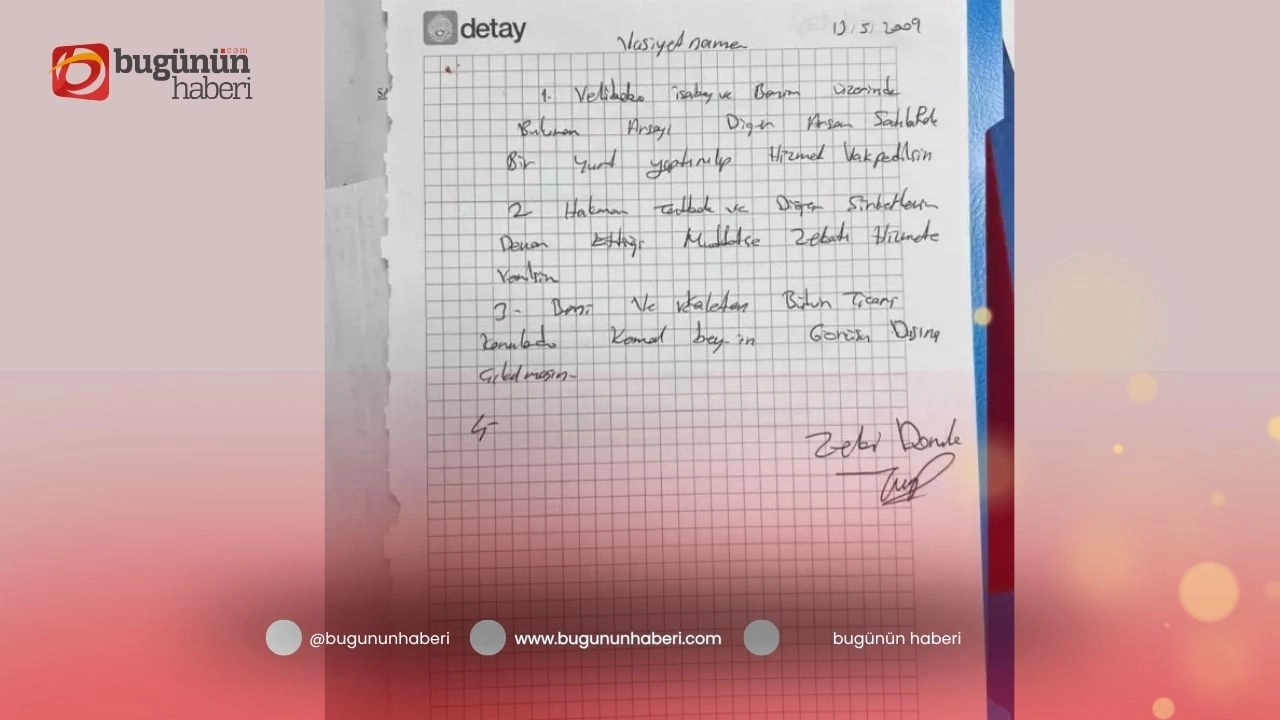 bugünün
.com
haberi
detay
13/5/2009
Vasiyetname
1. Velibaba isabey ve Benim üzerinde
Bulunan Arsayı Diger Arsam Satılıpda
Bir Yurt yaptırılıp Hizmet Vakfedilsin
2 Hakman ve Diger Sirketlerin
Devam Ettigi Muddetçe Zekatı Hizmete
Verilsin
3- Beni Ve Bütün Ticari
Konularda Kemal bey-in Görüsü Dısına
Cıkılmasın-
4-
Zeki
@bugununhaberi
www.bugununhaberi.com
bugünün haberi